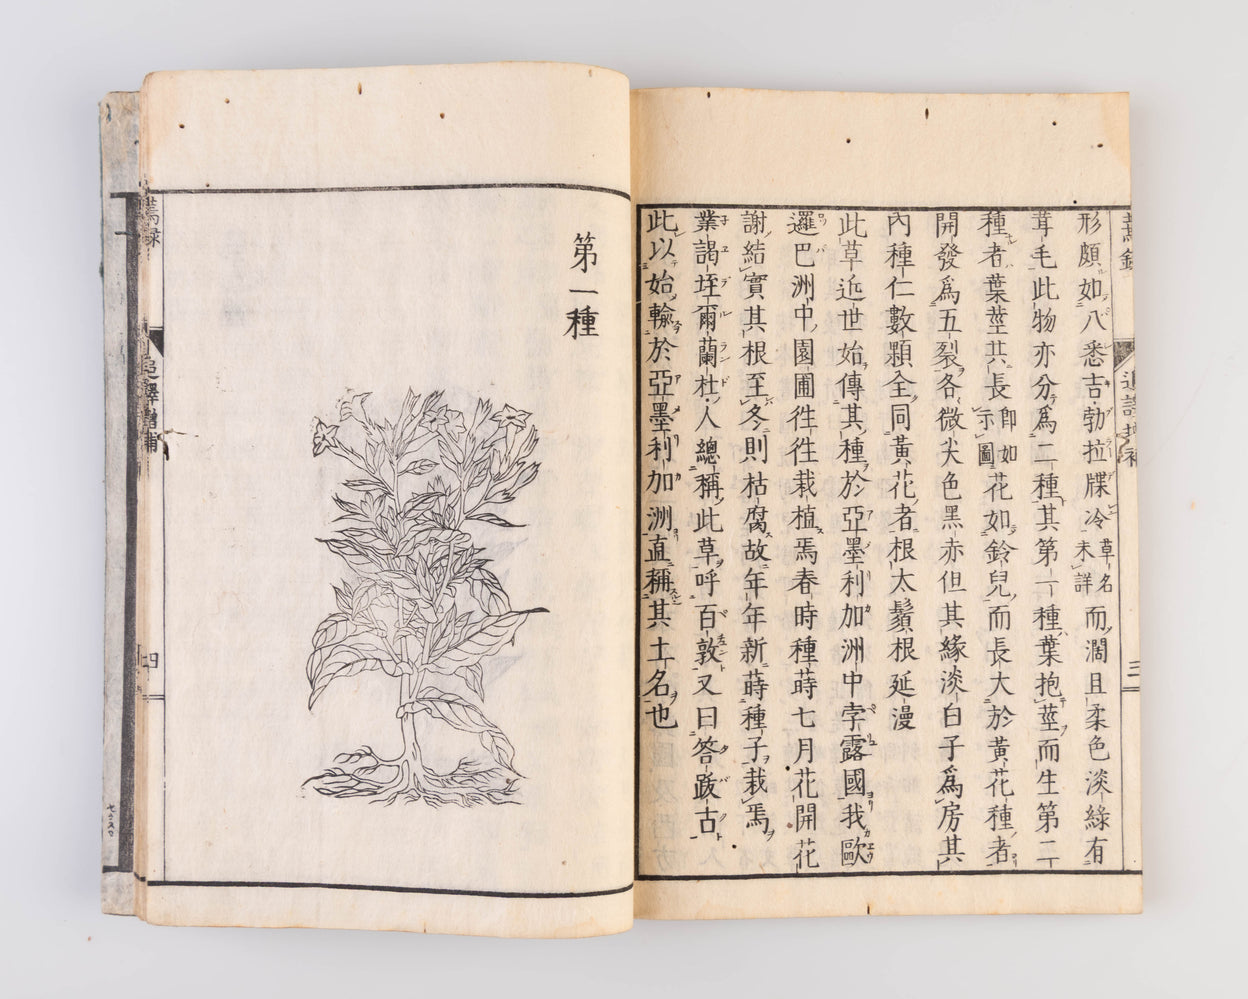 形頗如八悉吉勃拉牒冷草名未詳而濶且柔色淡綠有
茸毛此物亦分為二種其第一種葉抱莖而生第二
種者葉莖共長卽如示圖花如鈴兒而長大於黃花種者
開發爲五裂各微尖色黑赤但其緣淡白子爲房其
內種仁數顆全同黃花者根太鬚根延漫
此草近世始傳其種於亞墨利加洲中孛露國我歐
邏巴洲中園圃徃徃栽植焉春時種蒔七月花開花
謝結實其根至冬則枯腐故年年新蒔種子栽焉
業謁垤爾蘭杜人總稱此草呼百敦又曰答跋古
此以始輸於亞墨利加洲直稱其土名也
第一種